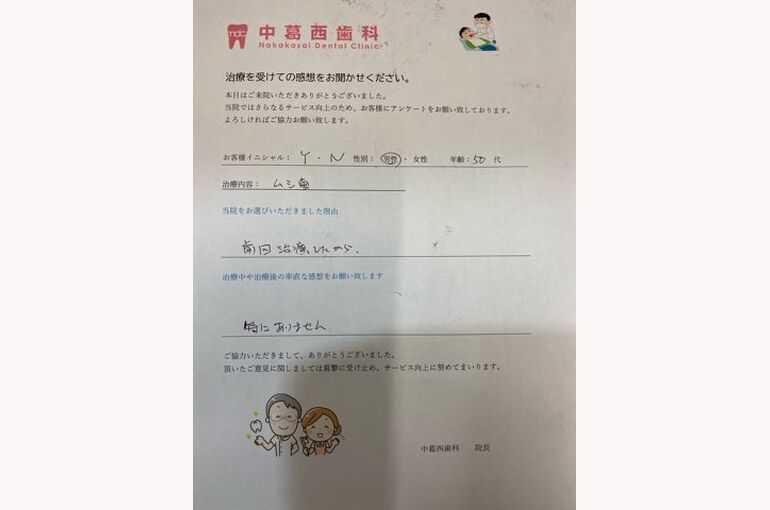 ndc 中葛西歯科
Nakakasai Dental Clinic
治療を受けての感想をお聞かせください。
本日はご来院いただきありがとうございました。
当院ではさらなるサービス向上のため、お客様にアンケートをお願い致しております。
よろしければご協力お願い致します。
お客様イニシャル： Y・N 性別： 男性・女性 年齢：50 代
治療内容： ムシ歯
当院をお選びいただきました理由
前回治療したから、
治療中や治療後の率直な感想をお願い致します
特にありません
ご協力いただきまして、ありがとうございました。
頂いたご意見に関しましては真摯に受け止め、サービス向上に努めてまいります。
中葛西歯科 院長